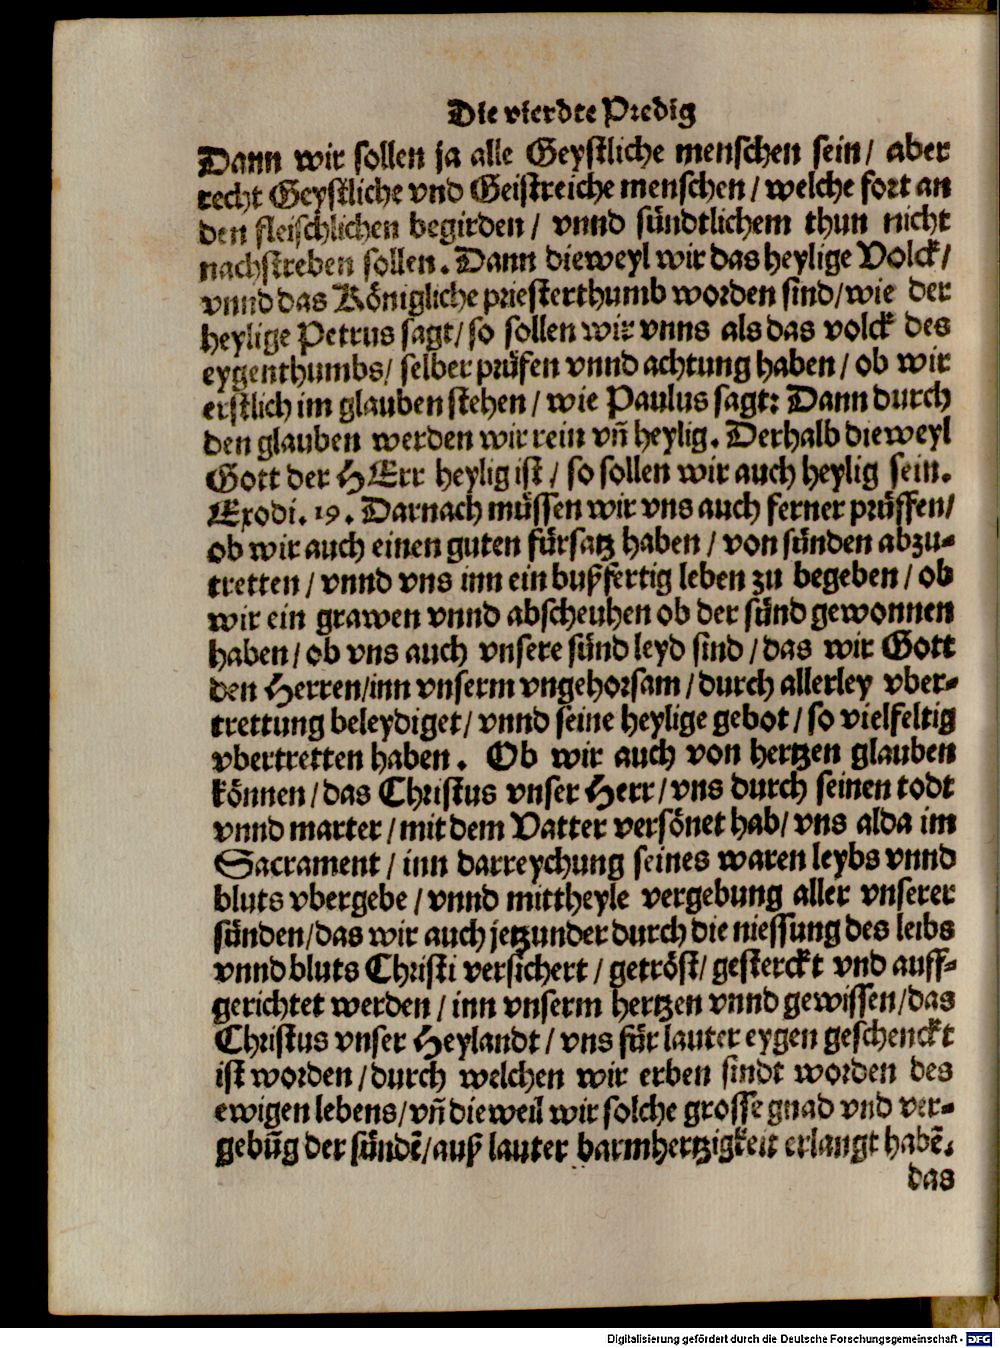 Die vierdte Predig
Dann wir sollen ja alle Geystliche menschen sein/ aber
recht Geystliche vnd Geistreiche menschen/ welche fort an
den fleischlichen begirden/ vnnd sündtlichem thun nicht
nachstreben sollen. Dann dieweyl wir das heylige Volck/
vnnd das Königliche priesterthumb worden sind/ wie der
heylige Petrus sagt/ so sollen wir vnns als das volck des
eygenthumbs/ selber prüfen vnnd achtung haben/ ob wir
erstlich im glauben stehen/ wie Paulus sagt: Dann durch
den glauben werden wir rein vñ heylig. Derhalb dieweyl
Gott der HErr heylig ist/ so sollen wir auch heylig sein.
Exodi. 19. Darnach müssen wir vns auch ferner prüffen/
ob wir auch einen guten fürsatz haben/ von sünden abzu-
tretten/ vnnd vns inn ein bußfertig leben zu begeben/ ob
wir ein grawen vnnd abscheuhen ob der sünd gewonnen
haben/ ob vns auch vnsere sünd leyd sind/ das wir Gott
den Herren/ inn vnserm vngehorsam/ durch allerley vber-
trettung beleydiget/ vnnd seine heylige gebot/ so vielfeltig
vbertretten haben. Ob wir auch von hertzen glauben
können/ das Christus vnser Herr/ vns durch seinen todt
vnnd marter/ mit dem Vatter versönet hab/ vns alda im
Sacrament/ inn darreychung seines waren leybs vnnd
bluts vbergebe/ vnnd mittheyle vergebung aller vnserer
sünden/ das wir auch jetzunder durch die niessung des leibs
vnnd bluts Christi versichert/ getröst/ gesterckt vnd auff-
gerichtet werden/ inn vnserm hertzen vnnd gewissen/ das
Christus vnser Heylandt/ vns für lauter eygen geschenckt
ist worden/ durch welchen wir erben sindt worden des
ewigen lebens/ vñ dieweil wir solche grosse gnad vnd ver-
gebũg der sündẽ/ auß lauter barmhertzigkeit erlangt habẽ.
das
Digitalisierung gefördert durch die Deutsche Forschungsgemeinschaft - DFG